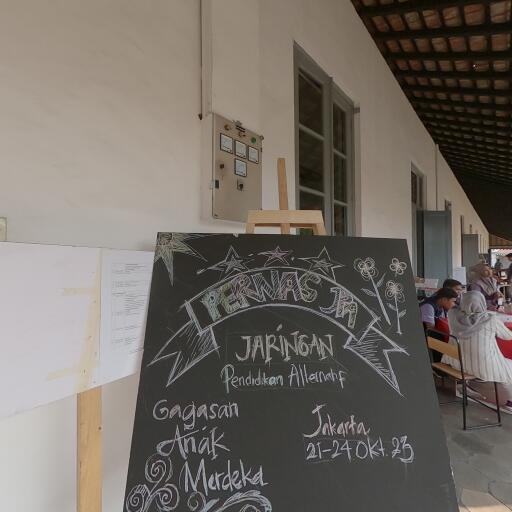 PERNAS JPA
JARINGAN
Pendidikan Alternatif
Gagasan
Anak
Merdeka
Jakarta
21-24 Okt. 23